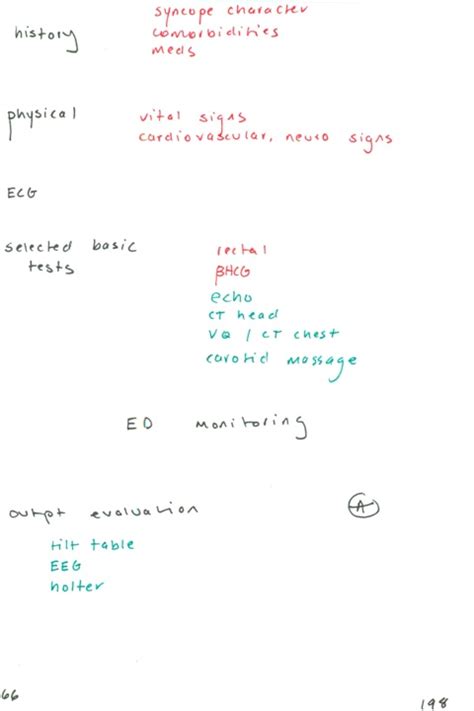 syncope character
history comorbidities
meds
physical vital signs
cardiovascular, neuro signs
ECG
selected basic rectal
tests βHCG
echo
CT head
VQ / CT chest
carotid massage
ED monitoring
outpt evaluation A
tilt table
EEG
holter
66 198